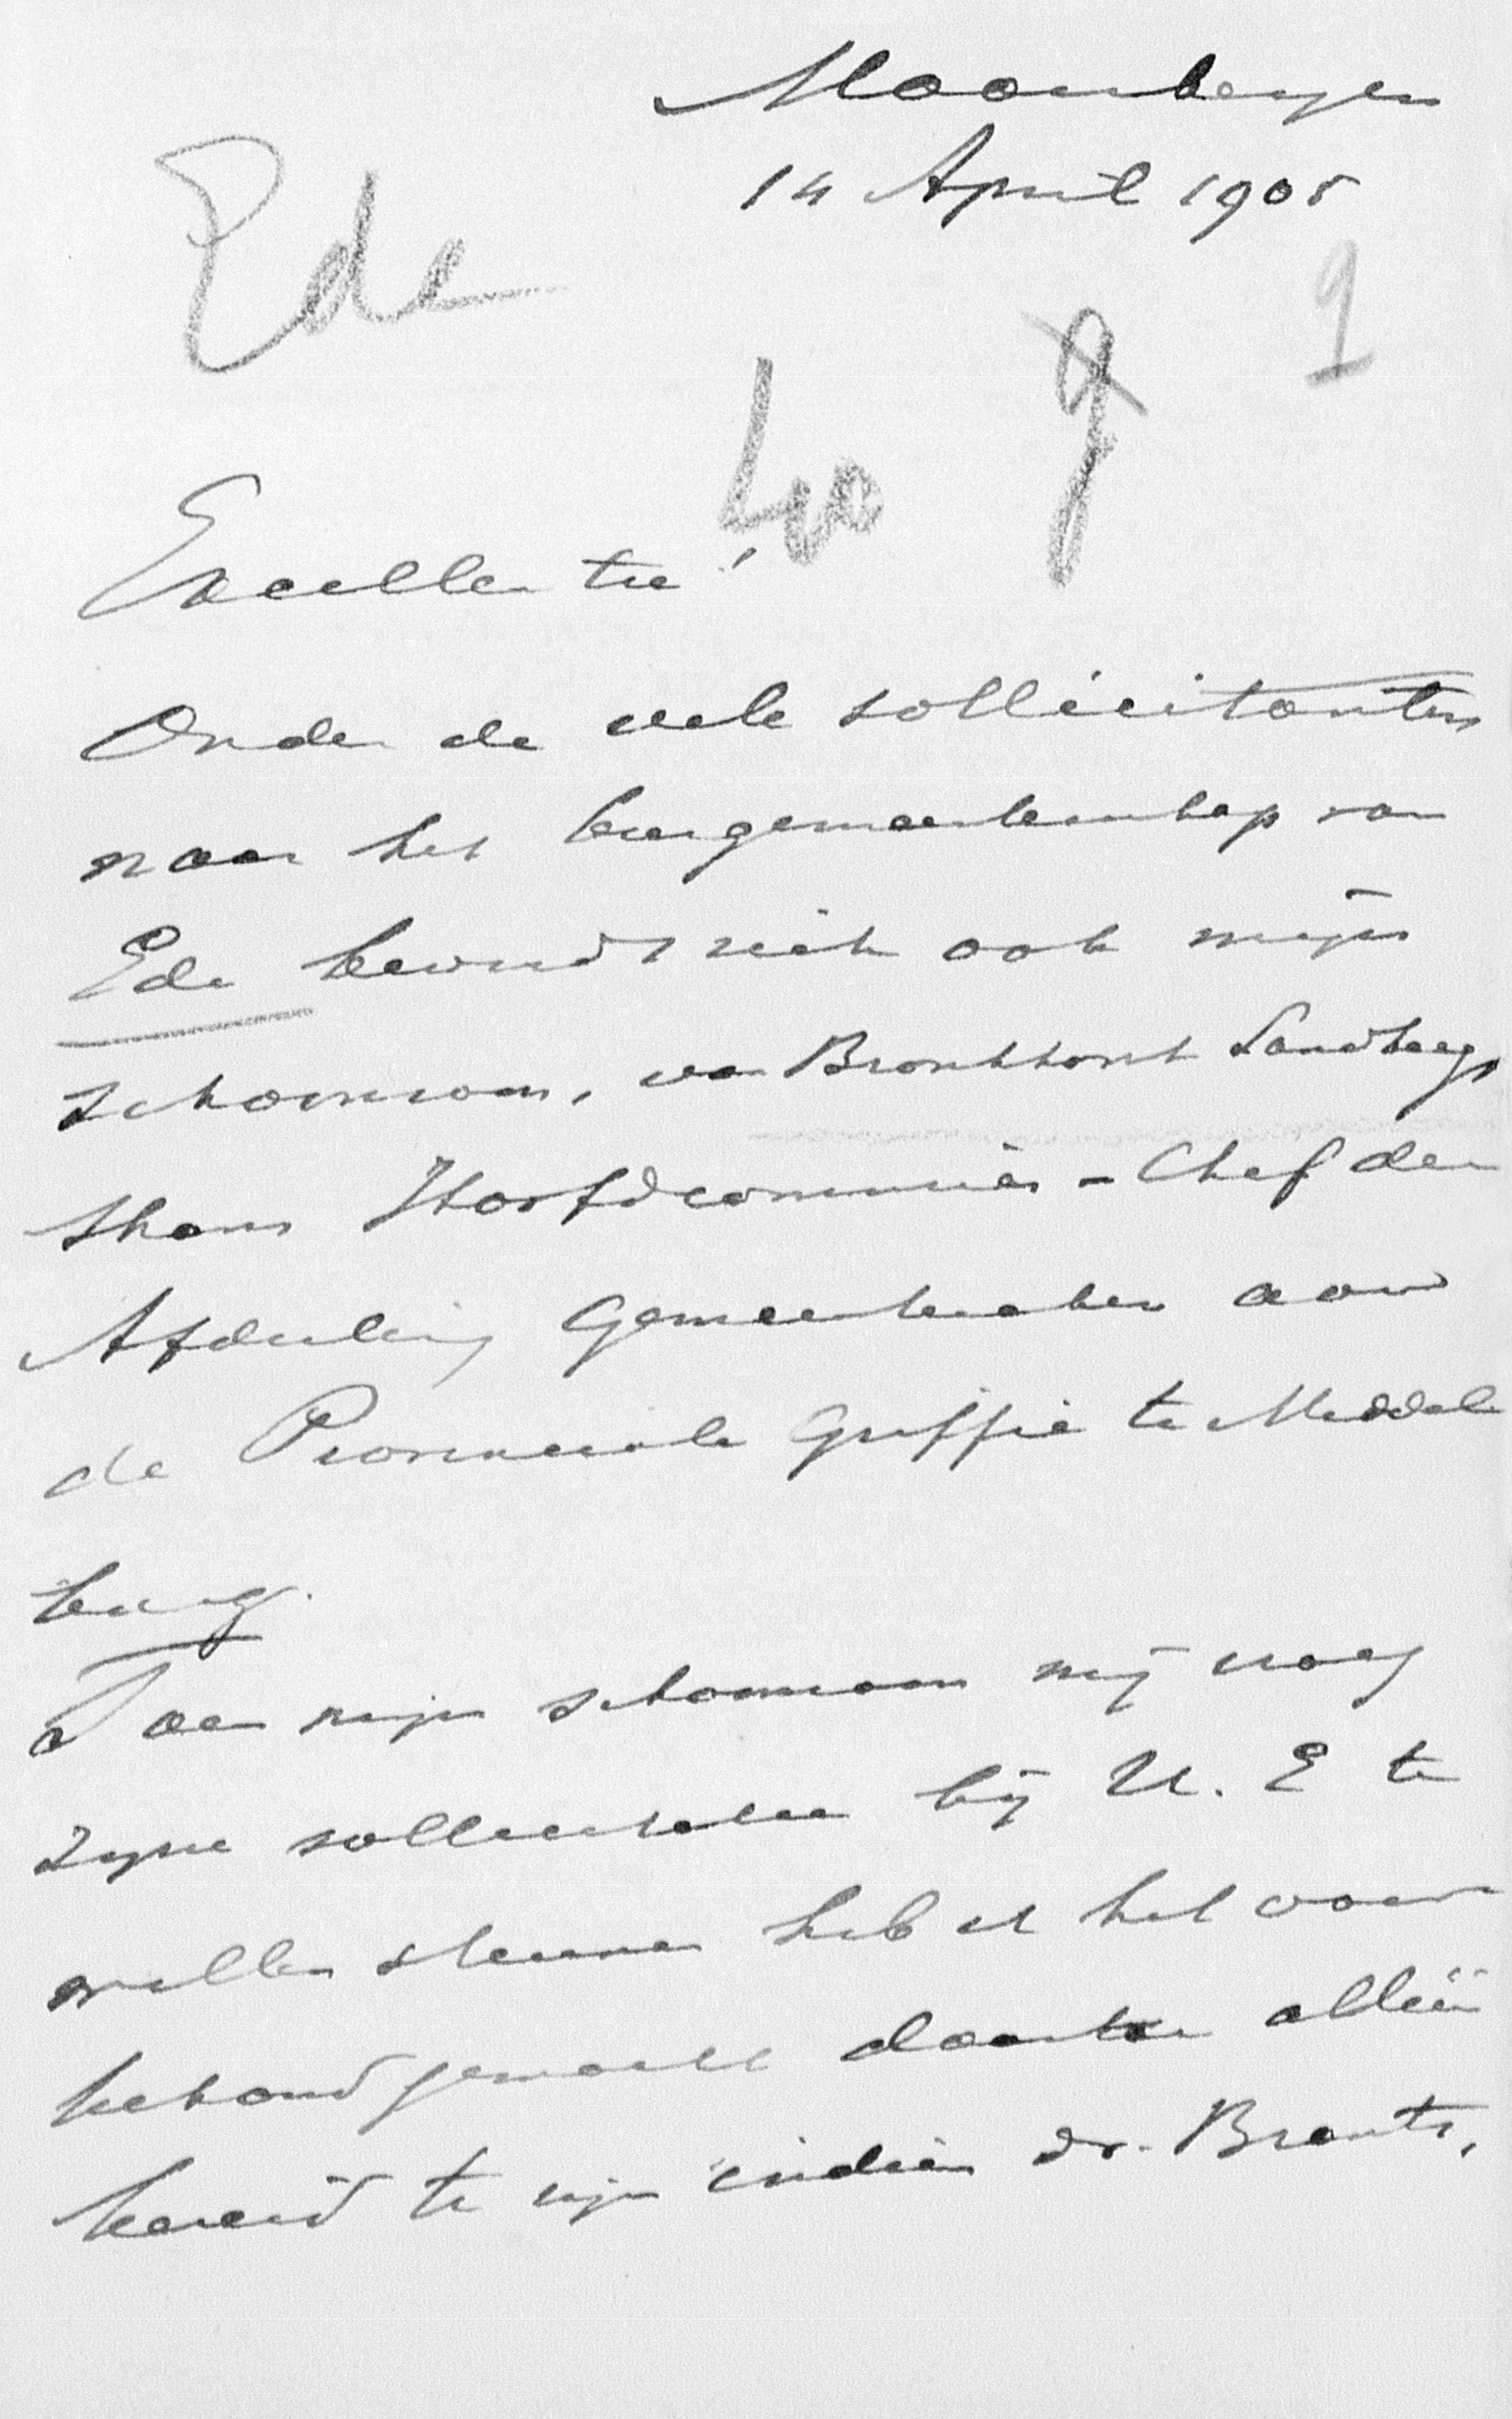 Moorbergen
14 April 1905
Ede
1
Excellentie!
Onder de vele sollicitanten
naar het burgemeesterschap van
Ede bevindt zich ook mijn
schoonzoon, van Bronkhorst Sandberg,
thans Hoofdcommies-Chef der
Afdeeling Gemeentezaken aan
de Provinciale Griffie te Middel
burg.
Toen mijn schoonzoon mij vroeg
zijne sollicitatie bij U. E te
willen steunen heb ik het voor
behoud gemaakt daartoe alleen
bereid te zijn indien dr. Brants,